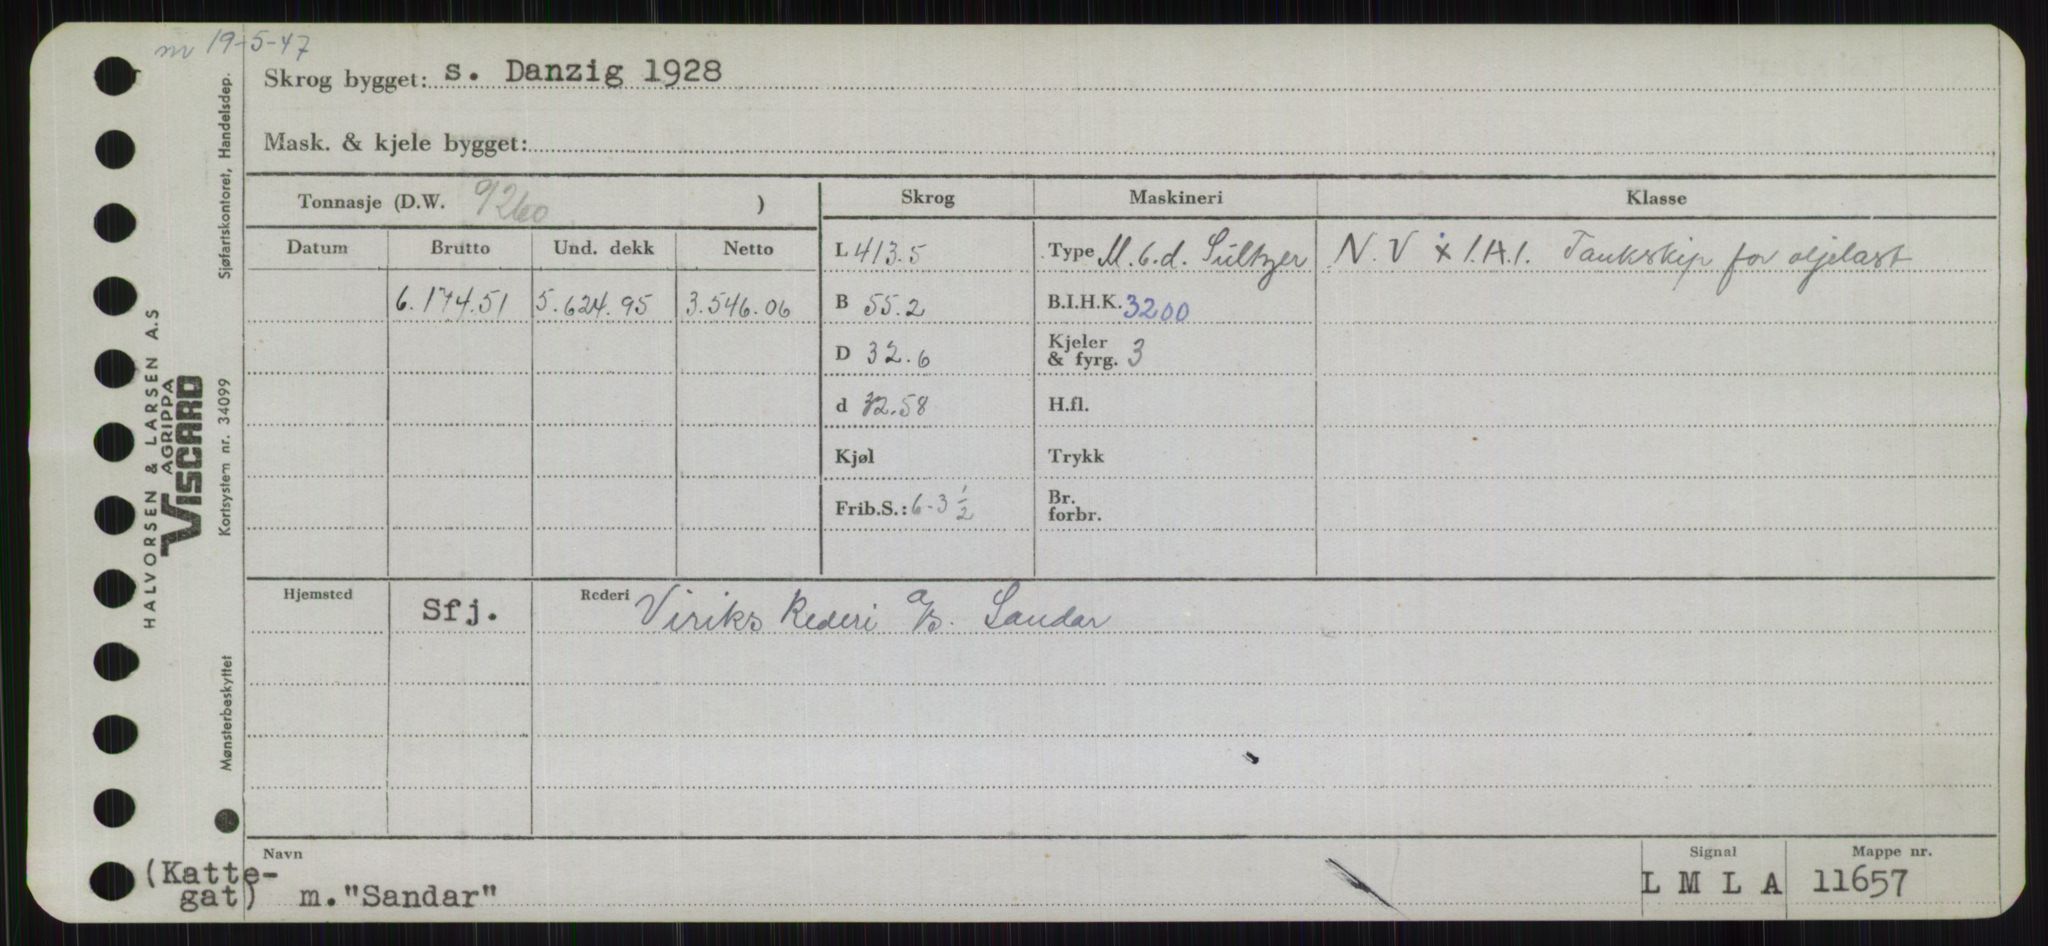 m 19-5-47
Skrog bygget: s. Danzig 1928
Mask. & kjele bygget:
Tonnasje (D.W. 9260 )
Skrog Maskineri Klasse
Datum Brutto Und. dekk Netto
L 413.5 Type M. 6.d. Sultzer N. V x 1.A.1. Tankskip for oljelast
6.174.51 5.624.95 3.546.06 B 55.2 B.I.H.K. 3200
D 32.6 Kjeler & fyrg. 3
d 32.58 H.fl.
Kjøl Trykk
Frib.S.: 6-3 1/2 Br. forbr.
Hjemsted Sfj. Rederi Viriks Rederi A/S. Sandar
Navn Signal Mappe nr.
(Katte-
gat) m."Sandar" L M L A 11657
HALVORSEN & LARSEN A.S
AGRIPPA
VISCARD
Sjøfartskontoret, Handelsdep.
Kortsystem nr. 34099
Mønsterbeskyttet